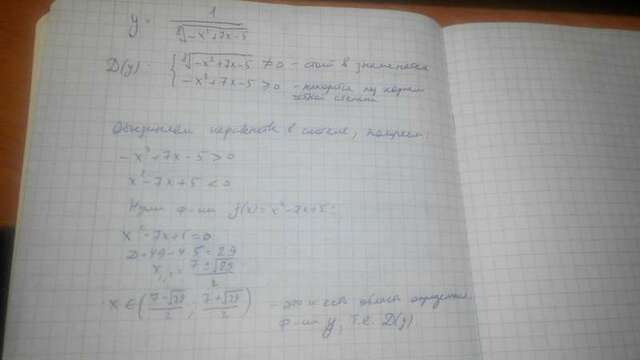 y = 1/∜(-x²+7x-5)
D(y): { ∜(-x²+7x-5) ≠ 0 - стоит в знаменателе
-x²+7x-5 ≥ 0 - находится под корнем четной степени
Объединяем неравенства в системе, получаем:
-x²+7x-5 > 0
x²-7x+5 < 0
Нули ф-ии f(x) = x²-7x+5:
x²-7x+5 = 0
D = 49-4·5 = 29
x₁,₂ = (7±√29)/2
x ∈ ((7-√29)/2 ; (7+√29)/2) - это и есть область определения
ф-ии y, т.е. D(y)